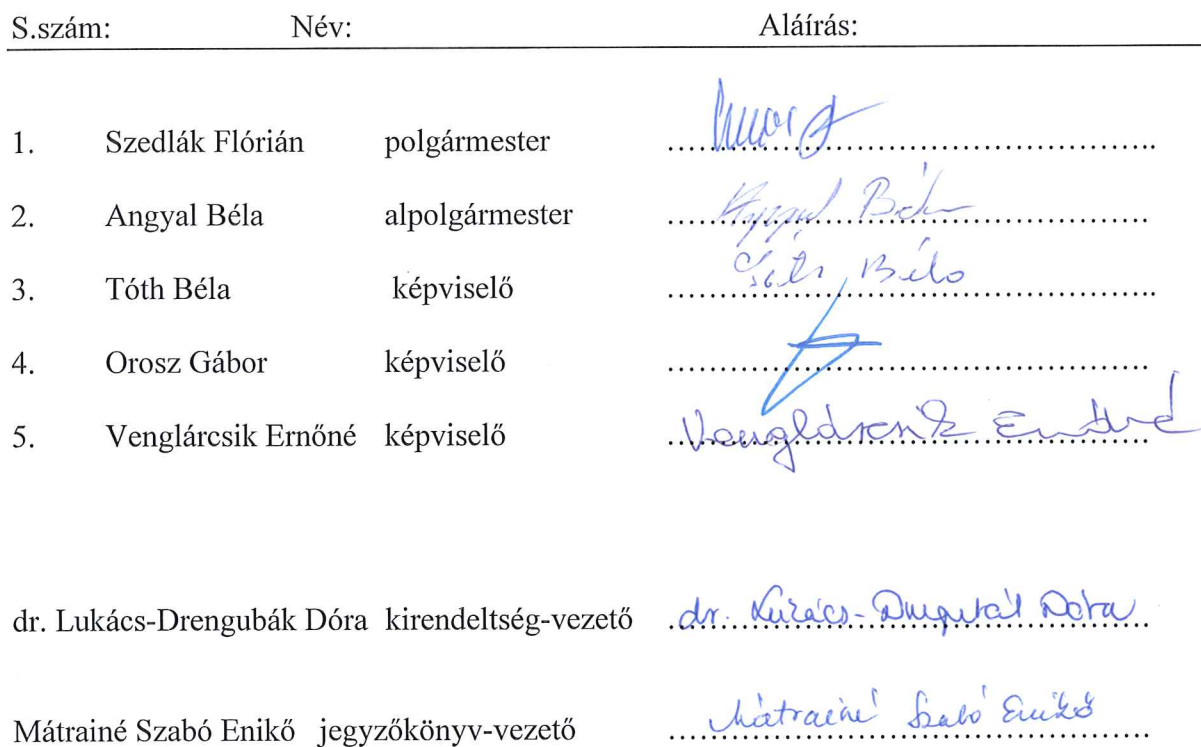 S.szám: Név: Aláírás:
1. Szedlák Flórián polgármester ................................................
2. Angyal Béla alpolgármester Angyal Béla
3. Tóth Béla képviselő Tóth Béla
4. Orosz Gábor képviselő ................................................
5. Venglárcsik Ernőné képviselő Venglárcsik Ernőné
dr. Lukács-Drengubák Dóra kirendeltség-vezető dr. Lukács-Drengubák Dóra
Mátrainé Szabó Enikő jegyzőkönyv-vezető Mátrainé Szabó Enikő